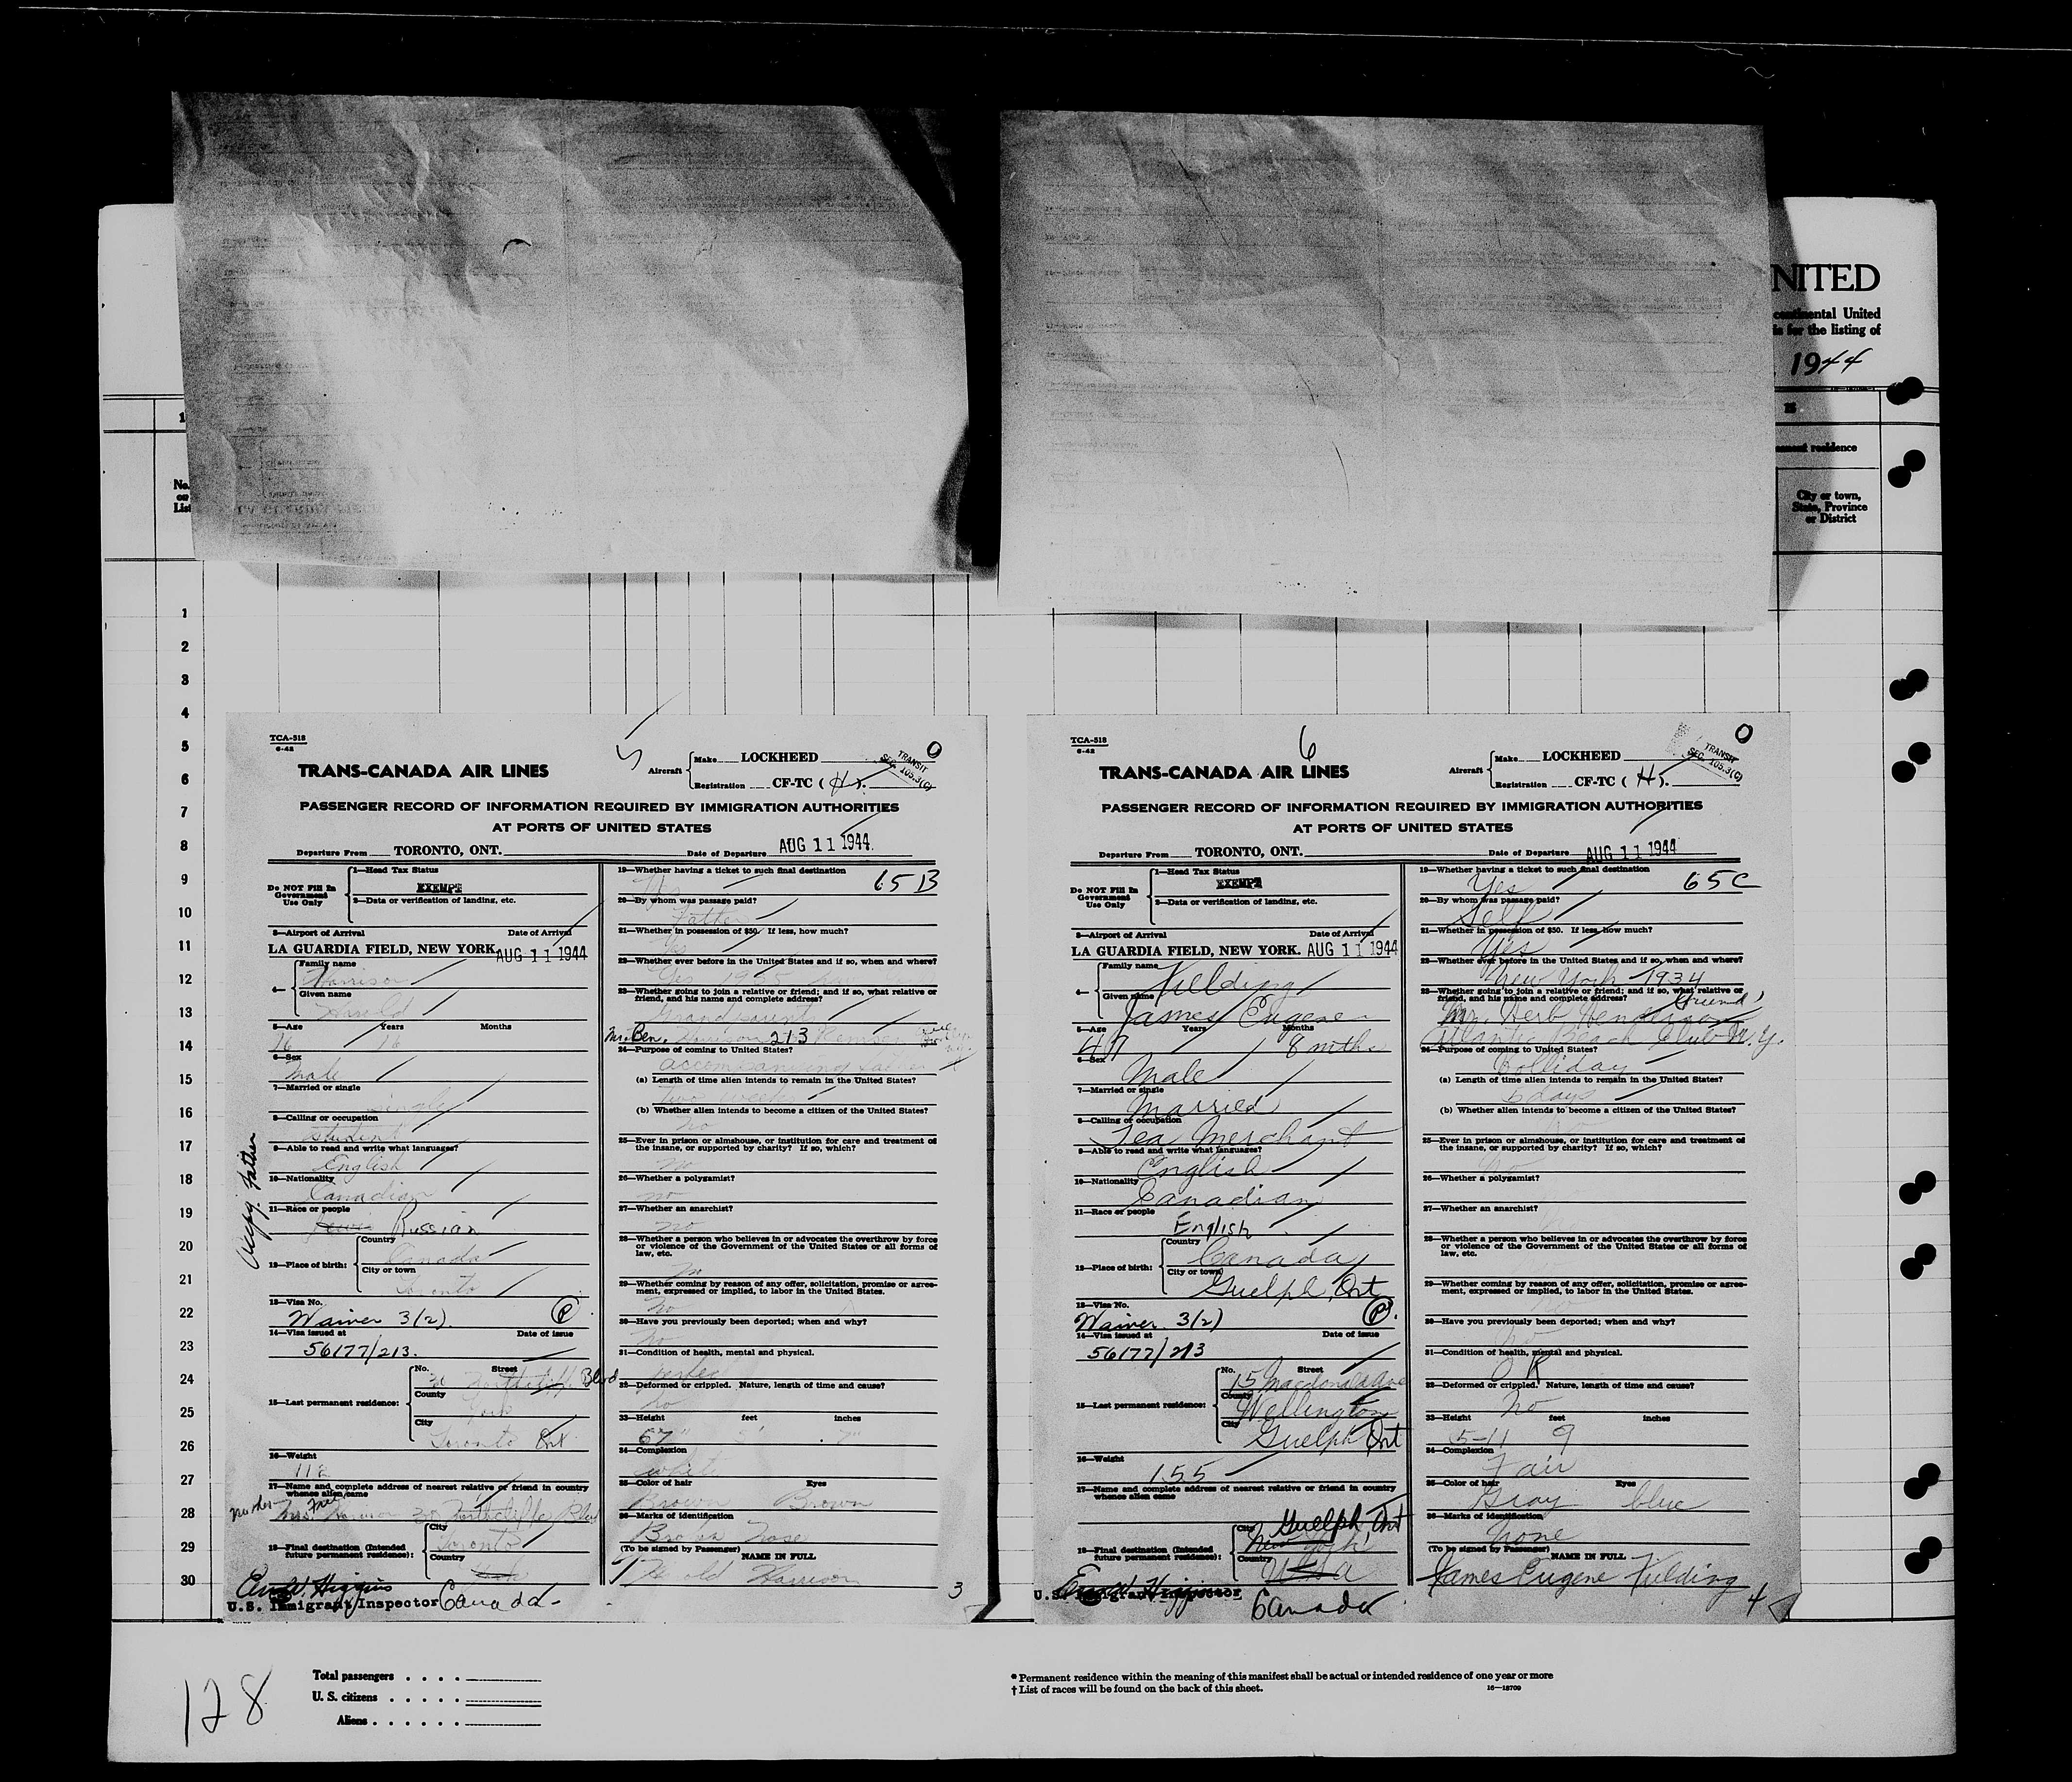 NITED
continental United
is for the listing of
1944
No.
on
List
residence
City or town,
State, Province
or District
1
2
3
4
5
6
7
8
9
10
11
12
13
14
15
16
17
18
19
20
21
22
23
24
25
26
27
28
29
30
TCA-518
6-42
5
0
TRANS-CANADA AIR LINES
Aircraft
Make LOCKHEED
Registration CF-TC (H).
TRANSIT
SEC. 105.3(C)
PASSENGER RECORD OF INFORMATION REQUIRED BY IMMIGRATION AUTHORITIES
AT PORTS OF UNITED STATES
Departure From TORONTO, ONT. Date of Departure AUG 11 1944
Do NOT Fill In
Government
Use Only
1—Head Tax Status
EXEMPT
2—Data or verification of landing, etc.
3—Airport of Arrival Date of Arrival
LA GUARDIA FIELD, NEW YORK. AUG 11 1944
4— Family name
Harrison
Given name
Harold
5—Age Years Months
16 16
6—Sex
Male
7—Married or single
Single
8—Calling or occupation
Student
9—Able to read and write what languages?
English
10—Nationality
Canadian
11—Race or people
Russian
12—Place of birth:
Country
Canada
City or town
Toronto
13—Visa No.
Waiver 3(2). P
14—Visa issued at Date of issue
56177/213.
15—Last permanent residence:
No. Street
30 Blvd
County
York
City
Toronto Ont
16—Weight
112
17—Name and complete address of nearest relative or friend in country
whence alien came
Mother Mrs. Harrison 30
18—Final destination (Intended
future permanent residence):
City
Toronto
Country
Canada
U.S. Immigrant Inspector
Accpy. Father
19—Whether having a ticket to such final destination
Yes 65 B
20—By whom was passage paid?
Father
21—Whether in possession of $50. If less, how much?
Yes
22—Whether ever before in the United States and if so, when and where?
Yes 1935
23—Whether going to join a relative or friend; and if so, what relative or
friend, and his name and complete address?
Grandparents
Mr. Ben. Harrison 213 Remsen
24—Purpose of coming to United States?
accompanying father
(a) Length of time alien intends to remain in the United States?
two weeks
(b) Whether alien intends to become a citizen of the United States?
No
25—Ever in prison or almshouse, or institution for care and treatment of
the insane, or supported by charity? If so, which?
no
26—Whether a polygamist?
no
27—Whether an anarchist?
no
28—Whether a person who believes in or advocates the overthrow by force
or violence of the Government of the United States or all forms of
law, etc.
No
29—Whether coming by reason of any offer, solicitation, promise or agree-
ment, expressed or implied, to labor in the United States.
No
30—Have you previously been deported; when and why?
no
31—Condition of health, mental and physical.
perfect
32—Deformed or crippled. Nature, length of time and cause?
no
33—Height feet inches
67" 5' 7"
34—Complexion
white
35—Color of hair Eyes
Brown Brown
36—Marks of identification
Broken nose
(To be signed by Passenger) NAME IN FULL
Harold Harrison
3
TCA-518
6-42
6
0
TRANS-CANADA AIR LINES
Aircraft
Make LOCKHEED
Registration CF-TC (H).
TRANSIT
SEC. 105.3(C)
PASSENGER RECORD OF INFORMATION REQUIRED BY IMMIGRATION AUTHORITIES
AT PORTS OF UNITED STATES
Departure From TORONTO, ONT. Date of Departure AUG 11 1944
Do NOT Fill In
Government
Use Only
1—Head Tax Status
EXEMPT
2—Data or verification of landing, etc.
3—Airport of Arrival Date of Arrival
LA GUARDIA FIELD, NEW YORK. AUG 11 1944
4— Family name
Fielding
Given name
James Eugene
5—Age Years Months
47 8 mths
6—Sex
Male
7—Married or single
Married
8—Calling or occupation
Tea Merchant
9—Able to read and write what languages?
English
10—Nationality
Canadian
11—Race or people
English
12—Place of birth:
Country
Canada
City or town
Guelph, Ont
13—Visa No.
Waiver 3(2) P
14—Visa issued at Date of issue
56177/213
15—Last permanent residence:
No. Street
15 Macdonald Ave
County
Wellington
City
Guelph Ont
16—Weight
155
17—Name and complete address of nearest relative or friend in country
whence alien came
18—Final destination (Intended
future permanent residence):
City Guelph, Ont
New York
Country
USA
Canada
U.S. Immigrant Inspector
19—Whether having a ticket to such final destination
Yes 65C
20—By whom was passage paid?
Self
21—Whether in possession of $50. If less, how much?
Yes
22—Whether ever before in the United States and if so, when and where?
New York 1934
23—Whether going to join a relative or friend; and if so, what relative or
friend, and his name and complete address? friend
Mr. Herb Henderson
Atlantic Beach Club N.Y.
24—Purpose of coming to United States?
Holliday
(a) Length of time alien intends to remain in the United States?
6 days
(b) Whether alien intends to become a citizen of the United States?
No
25—Ever in prison or almshouse, or institution for care and treatment of
the insane, or supported by charity? If so, which?
No
26—Whether a polygamist?
27—Whether an anarchist?
No
28—Whether a person who believes in or advocates the overthrow by force
or violence of the Government of the United States or all forms of
law, etc.
29—Whether coming by reason of any offer, solicitation, promise or agree-
ment, expressed or implied, to labor in the United States.
No
30—Have you previously been deported; when and why?
No
31—Condition of health, mental and physical.
OK
32—Deformed or crippled. Nature, length of time and cause?
No
33—Height feet inches
5-11 9
34—Complexion
Fair
35—Color of hair Eyes
Gray blue
36—Marks of identification
None
(To be signed by Passenger) NAME IN FULL
James Eugene Fielding
4
128
Total passengers
U. S. citizens
Aliens
* Permanent residence within the meaning of this manifest shall be actual or intended residence of one year or more
† List of races will be found on the back of this sheet.
16—18709